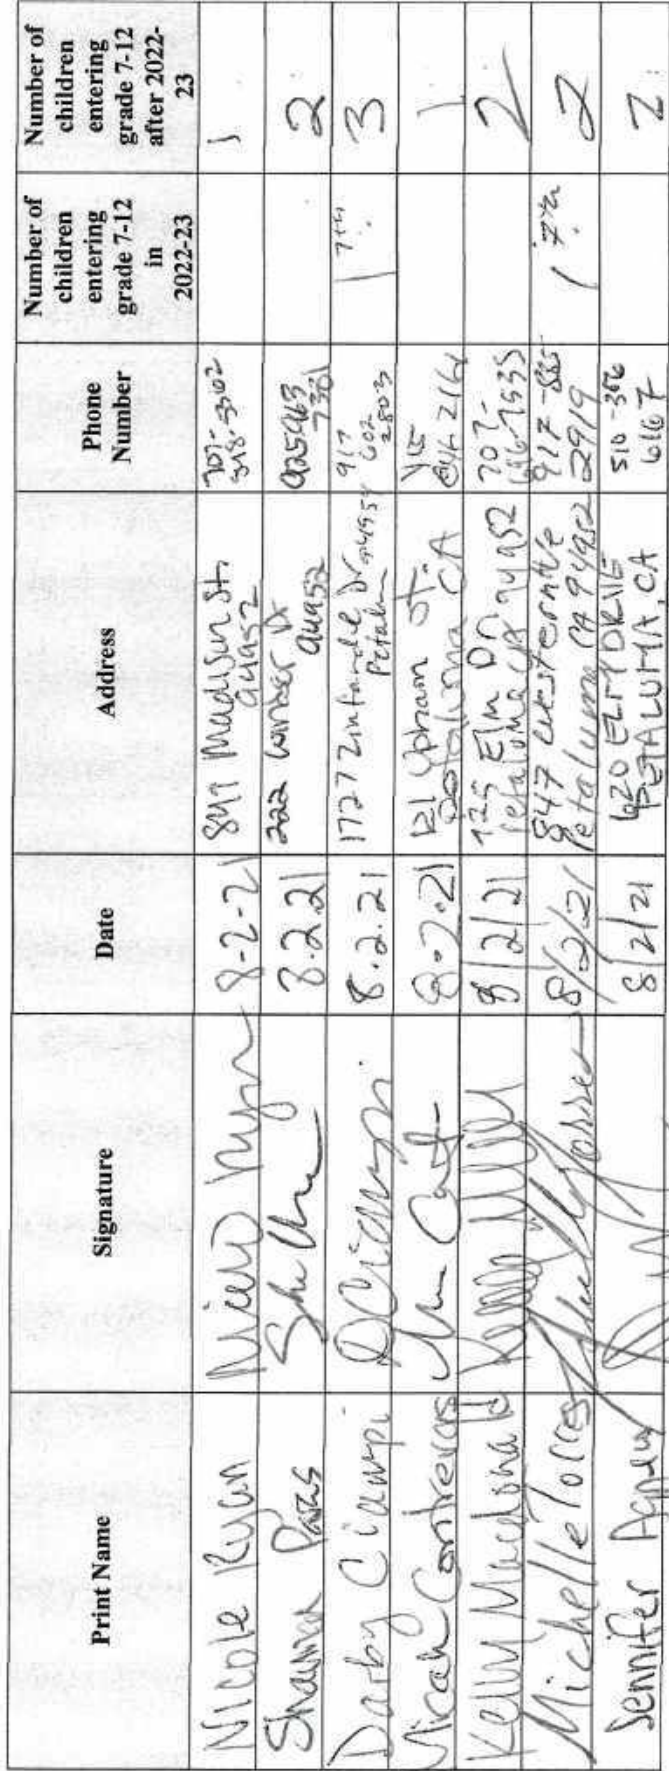 Print Name Signature Date Address Phone Number Number of children entering grade 7-12 in 2022-23 Number of children entering grade 7-12 after 2022-23
Nicole Ryan 8-2-21 847 Madison St. 94952 707- 3102 1
Shauna 8.2.21 222 Dr 94952 925463 7301 2
Darby Ciampi DCiampi 8.2.21 1727 Zinfandel Dr Petaluma 917 602 2803 1 7th 3
Micah Contreras 8.2.21 121 Upham St. Petaluma CA 415 2164 1
Kelly Macdonald 8/2/21 725 Elm Dr. Petaluma CA 94952 707- 7535 2
Michelle Torres 8/2/21 847 Western Ave Petaluma CA 94952 917- 2919 1 7th 2
Jennifer 8/2/21 620 ELM DRIVE PETALUMA, CA 510-366 6167 2